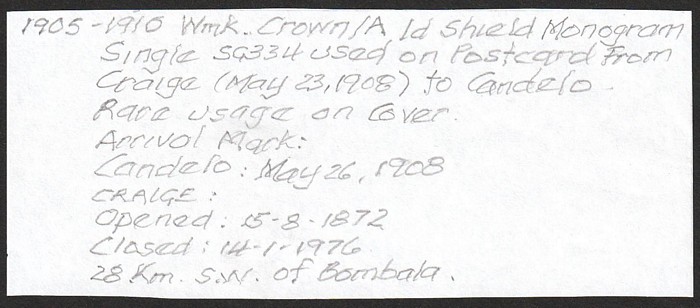 1905-1910 Wmk. Crown/A 1d Shield Monogram
Single SG334 used on Postcard From
Craige (May 23, 1908) to Candelo.
Rare usage on Cover.
Arrival Mark:
Candelo: May 26, 1908
CRAIGE:
Opened: 15-8-1872
Closed: 14-1-1976
28 Km. S.W. of Bombala.